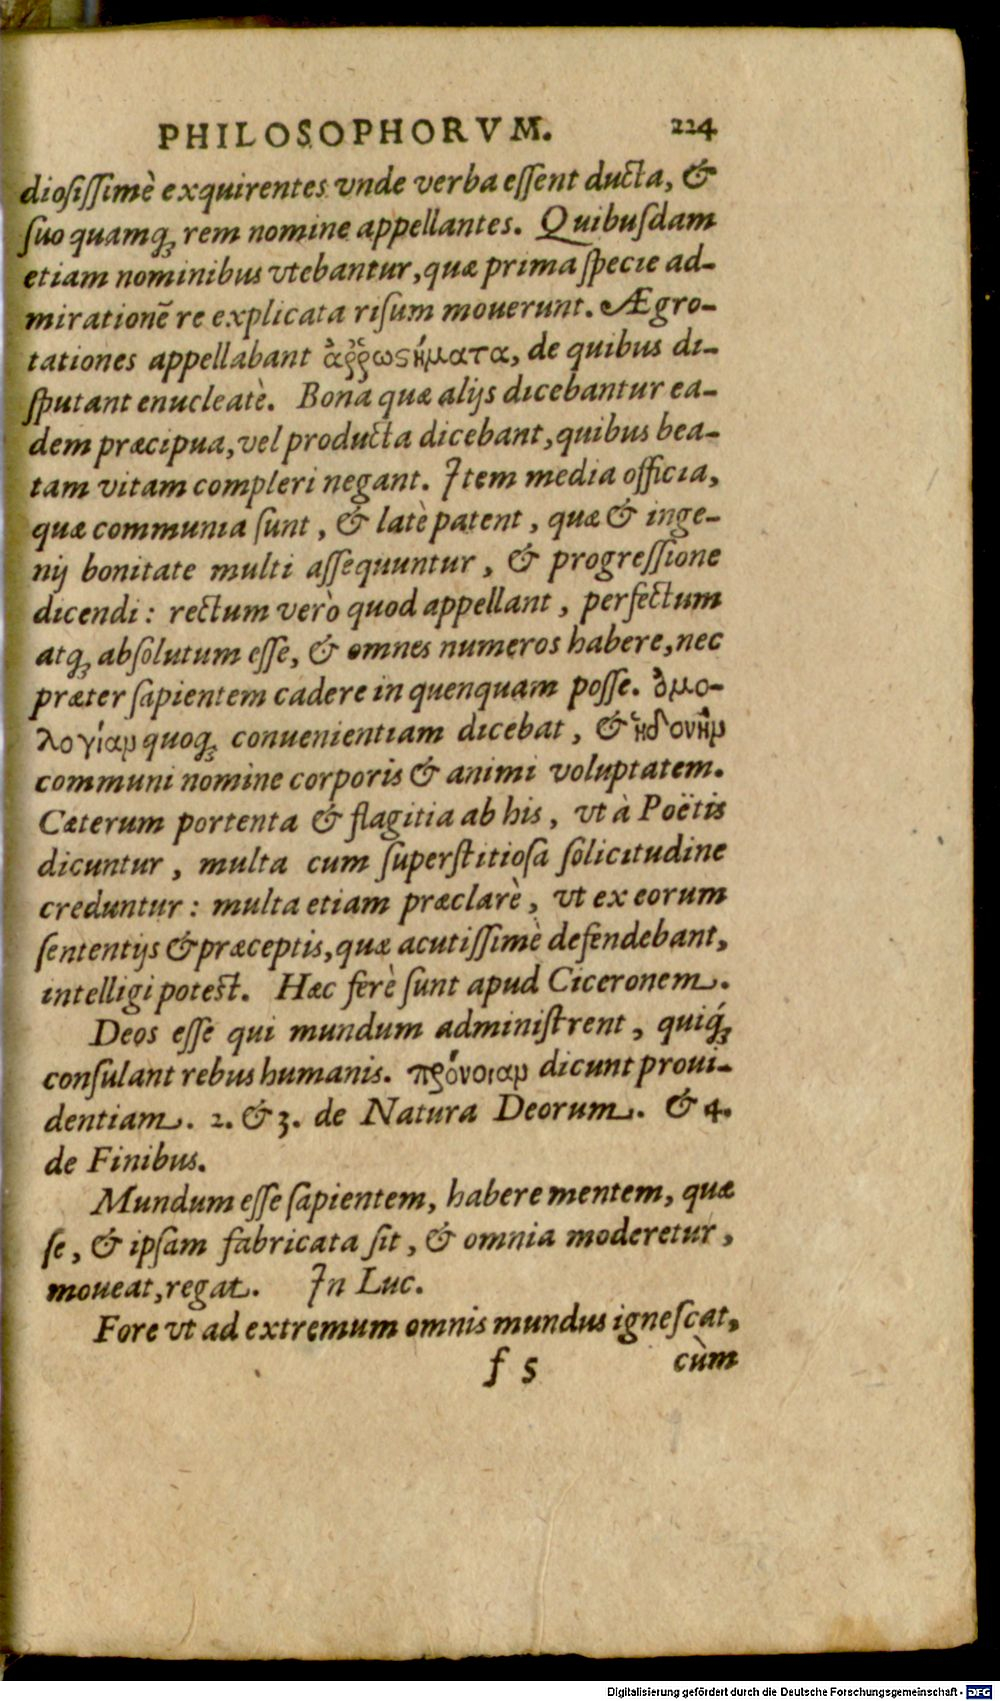 PHILOSOPHORVM. 224
diosissimè exquirentes vnde verba essent ducta, &
suo quamq; rem nomine appellantes. Quibusdam
etiam nominibus vtebantur, quæ prima specie ad-
mirationē re explicata risum mouerunt. Ægro-
tationes appellabant ἀῤῥωϛήματα, de quibus di-
sputant enucleatè. Bona quæ alijs dicebantur ea-
dem præcipua, vel producta dicebant, quibus bea-
tam vitam compleri negant. Item media officia,
quæ communia sunt, & latè patent, quæ & inge-
nij bonitate multi assequuntur, & progressione
dicendi: rectum verò quod appellant, perfectum
atq; absolutum esse, & omnes numeros habere, nec
præter sapientem cadere in quenquam posse. ὁμο-
λογίαμ quoq; conuenientiam dicebat, & ἡδονὴμ
communi nomine corporis & animi voluptatem.
Cæterum portenta & flagitia ab his, vt à Poëtis
dicuntur, multa cum superstitiosa solicitudine
creduntur: multa etiam præclarè, vt ex eorum
sententijs & præceptis, quæ acutissimè defendebant,
intelligi potest. Hæc ferè sunt apud Ciceronem.
Deos esse qui mundum administrent, quiq́;
consulant rebus humanis. πρόνοιαμ dicunt proui-
dentiam. 2. & 3. de Natura Deorum. & 4.
de Finibus.
Mundum esse sapientem, habere mentem, quæ
se, & ipsam fabricata sit, & omnia moderetur,
moueat, regat. In Luc.
Fore vt ad extremum omnis mundus ignescat,
f 5 cùm
Digitalisierung gefördert durch die Deutsche Forschungsgemeinschaft - DFG